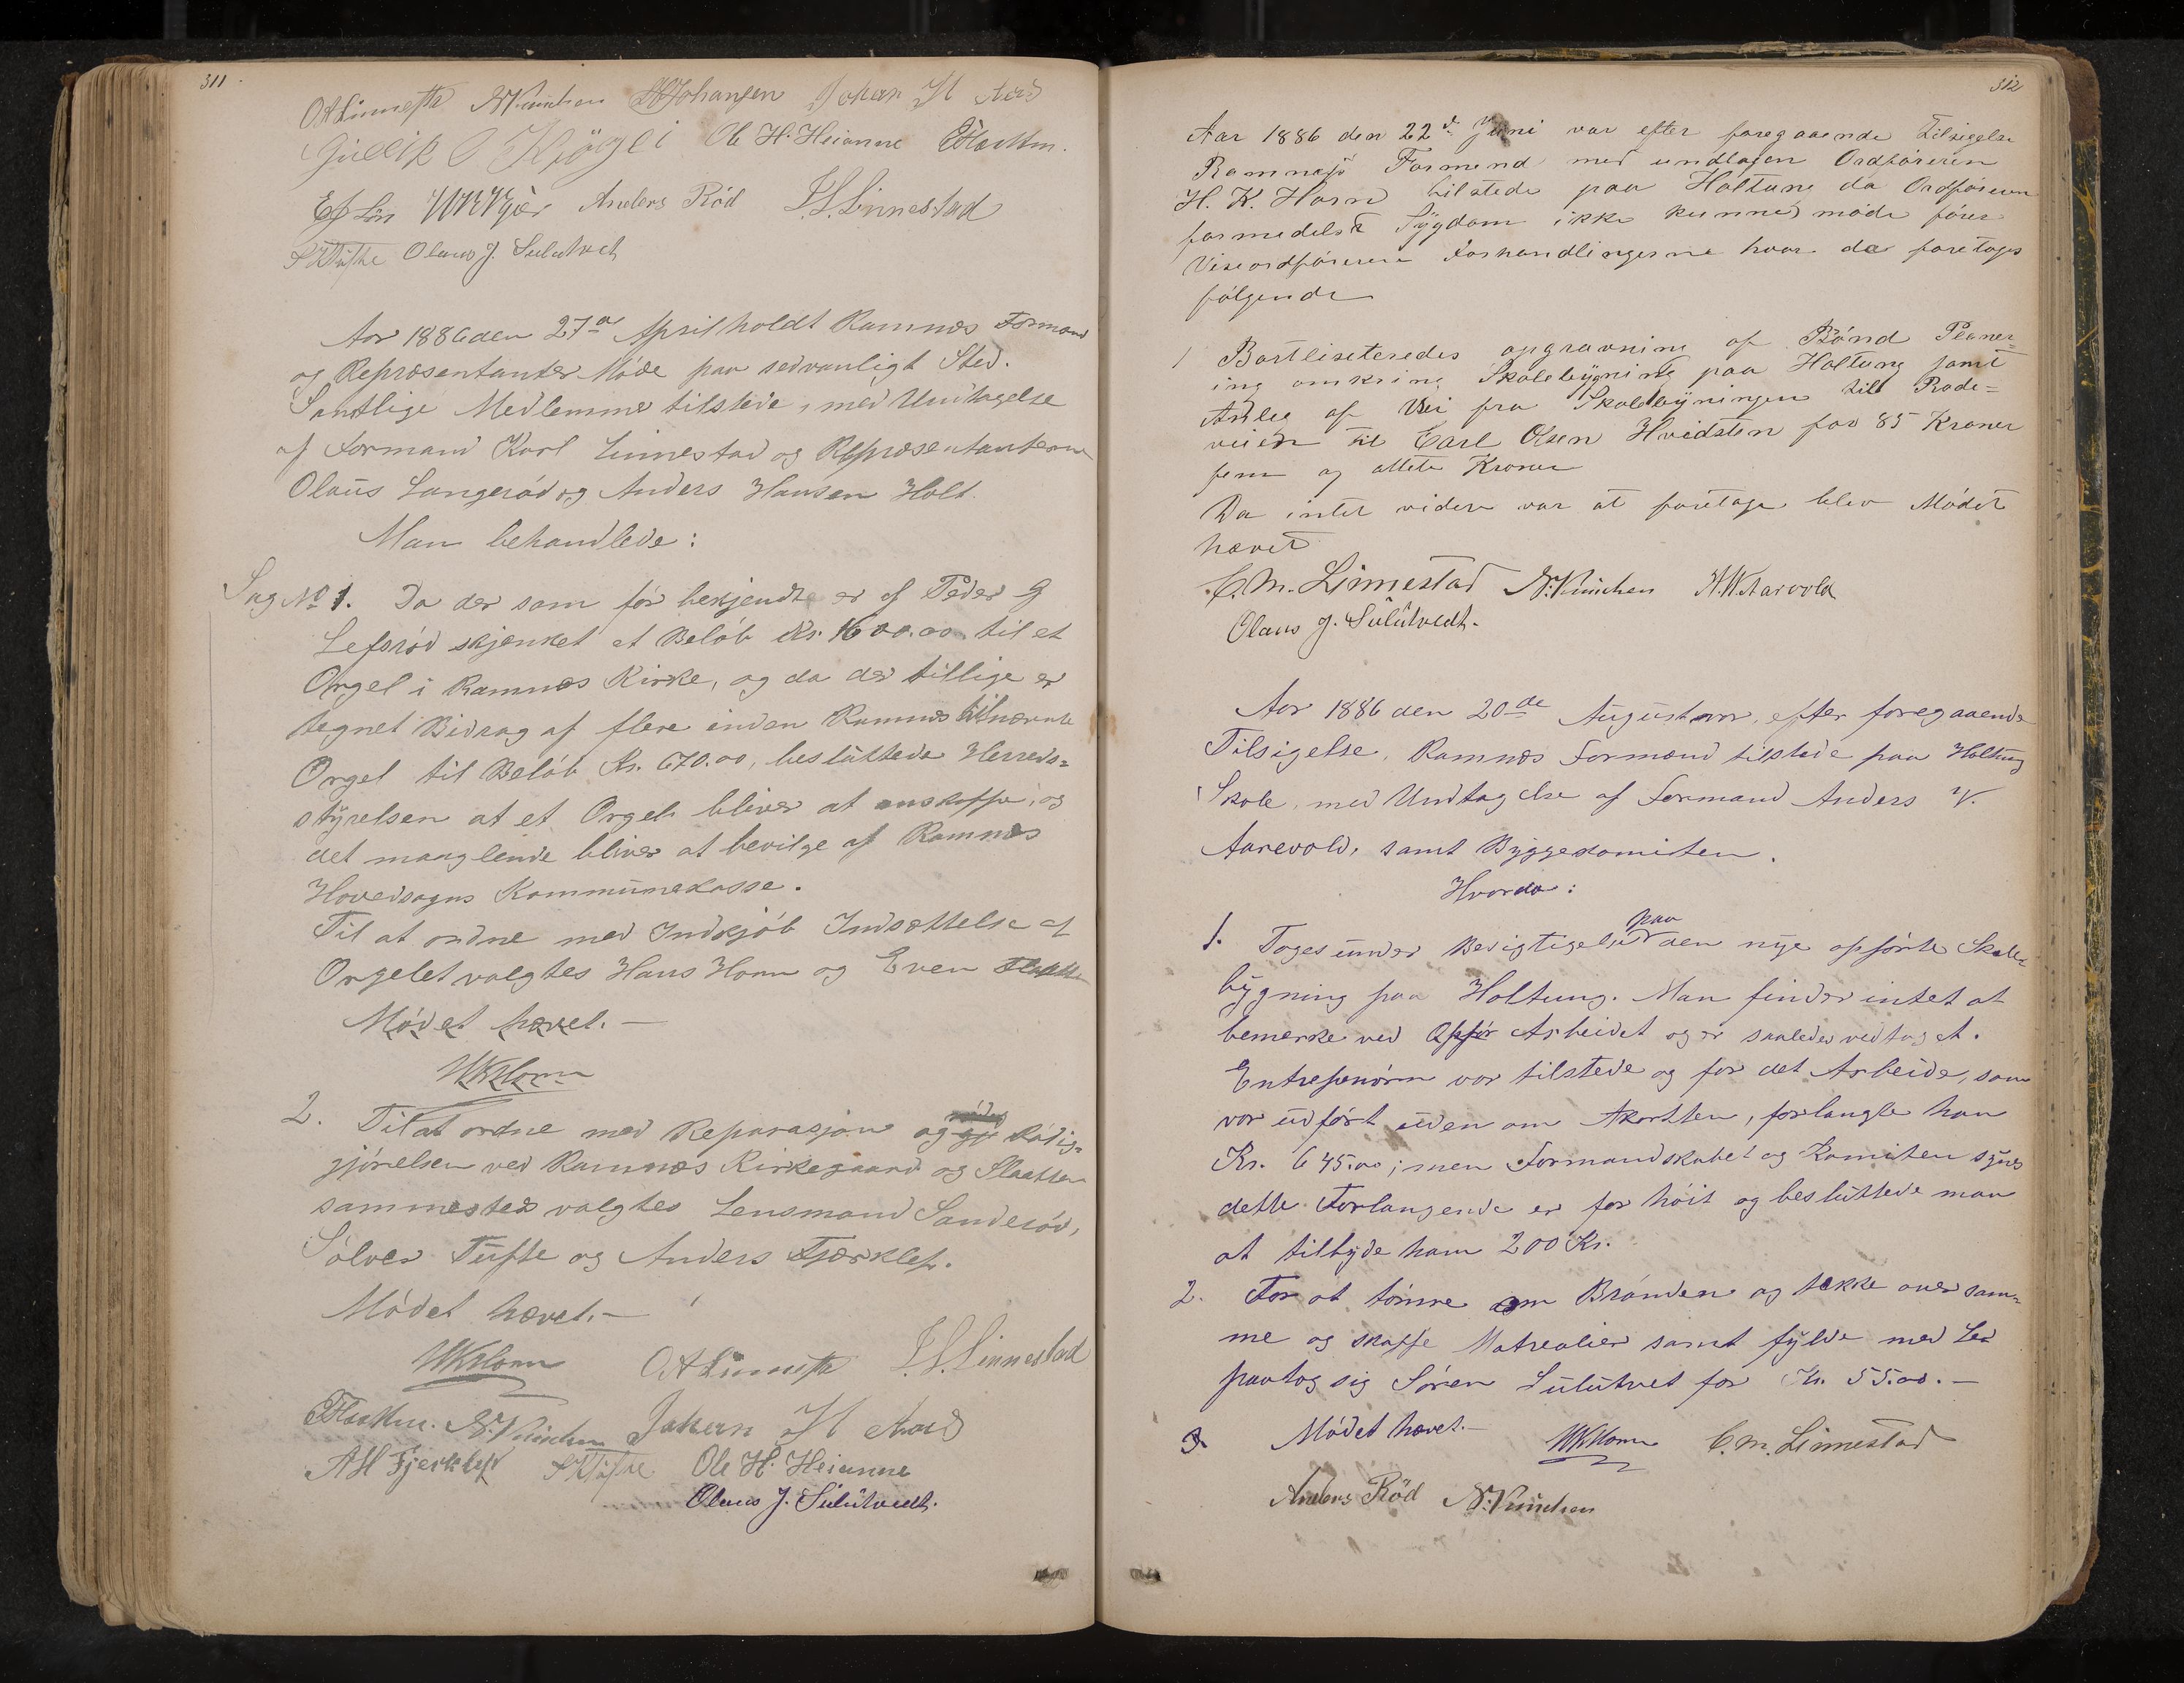 311
O A Linnestd N. Kinchen Johansen Johan H Aas
Gullik O Kjøgli Ole H. Heianne Flaatten.
Anders Röd L. S. Linnestad
S K Tufte Olaus J. Sulutvet
Aar 1886 den 27de April holdt Ramnæs Formand
og Repræsentanter Møde paa sedvanligt Sted.
Samtlige Medlemmer tilstede, med Undtagelse
af Formand Karl Linnestad og Repræsentanterne
Olaus Langerød og Anders Hansen Holt.
Man behandlede:
Sag No 1. Da der som før bekjendt er af Peder G
Lefsrød skjænket et Beløb Kr. 1600.00 til et
Orgel i Ramnæs Kirke, og da der tillige er
tegnet Bidrag af flere inden Ramnæs til nævnte
Orgel til Beløb Kr. 670.00, besluttede Herreds=
styrelsen at et Orgel bliver at anskaffe, og
det manglende bliver at bevilge af Ramnæs
Hovedsogns Kommunekasse.
Til at ordne med Indkjøb Indsættelse af
Orgelet valgtes Hans Horn og Even Flaatten
Mødet hævet.—
HKHorn
2. Til at ordne med Reparasjon og gj Rødig=
gjørelsen ved Ramnæs Kirkegaard og Slaatten
sammesteds valgtes Lensmand Sanderød,
Sølver Tufte og Anders Fjærkleft.
Mødet hævet.—
HKHorn O A Linnestd L. S. Linnestad
Flaatten. N. Kinchen Johan H Aas
AH Fjerkleft S K Tufte Ole H. Heianne
Olaus J. Sulutvedt.
312
Aar 1886 den 22de Juni var efter foregaaende Tilsiggelse
Ramnæs Formend med undtagen Ordføreren
H. K. Horn tilstede paa Holtung da Ordføreren
formedelst Sygdom ikke kunne møde fører
Viseordføreren Forhandlingerne hvor da foretoges
følgende
1 Bortliseteredes opgravning af Brønd Planer=
ing omkring Skolebygning paa Holtung samt
Anleg af Vei fra Skolebyningen till Rode=
veien til Carl Olsen Hvidsten for 85 Kroner
fem og ottete Kroner
Da intet videre var at foretage blev Mødet
hævet
C. M. Linnestad N. Kinchen A. W. Aarvold
Olaus J. Sulutvedt.
Aar 1886 den 20de August var, efter foregaaende
Tilsigelse, Ramnæs Formænd tilstede paa Holtung
Skole, med Undtagelse af Formand Anders W.
Aarevold, samt Byggekomiten.
Hvorda:
1. Toges under Besigtigelse paa den nye opførte Skole=
bygning paa Holtung. Man finder intet at
bemerke ved Opfør Arbeidet og er saaledes vedtaget.
Entreprenøren var tilstede og for det Arbeide, som
var udført uden om Akortten, forlangte han
Kr. 645.00; men Formandskabet og Komiten synes
dette Forlangende er for høit og besluttede man
at tilbyde ham 200 Kr.
2. For at tømre om Brønden og tække over sam=
me og skaffe Matrealier samt fylde med Ler
paatog sig Søren Sulutvet for Kr. 55.00.—
3. Mødet hævet.— HKHorn C. M. Linnestad
Anders Röd N. Kinchen